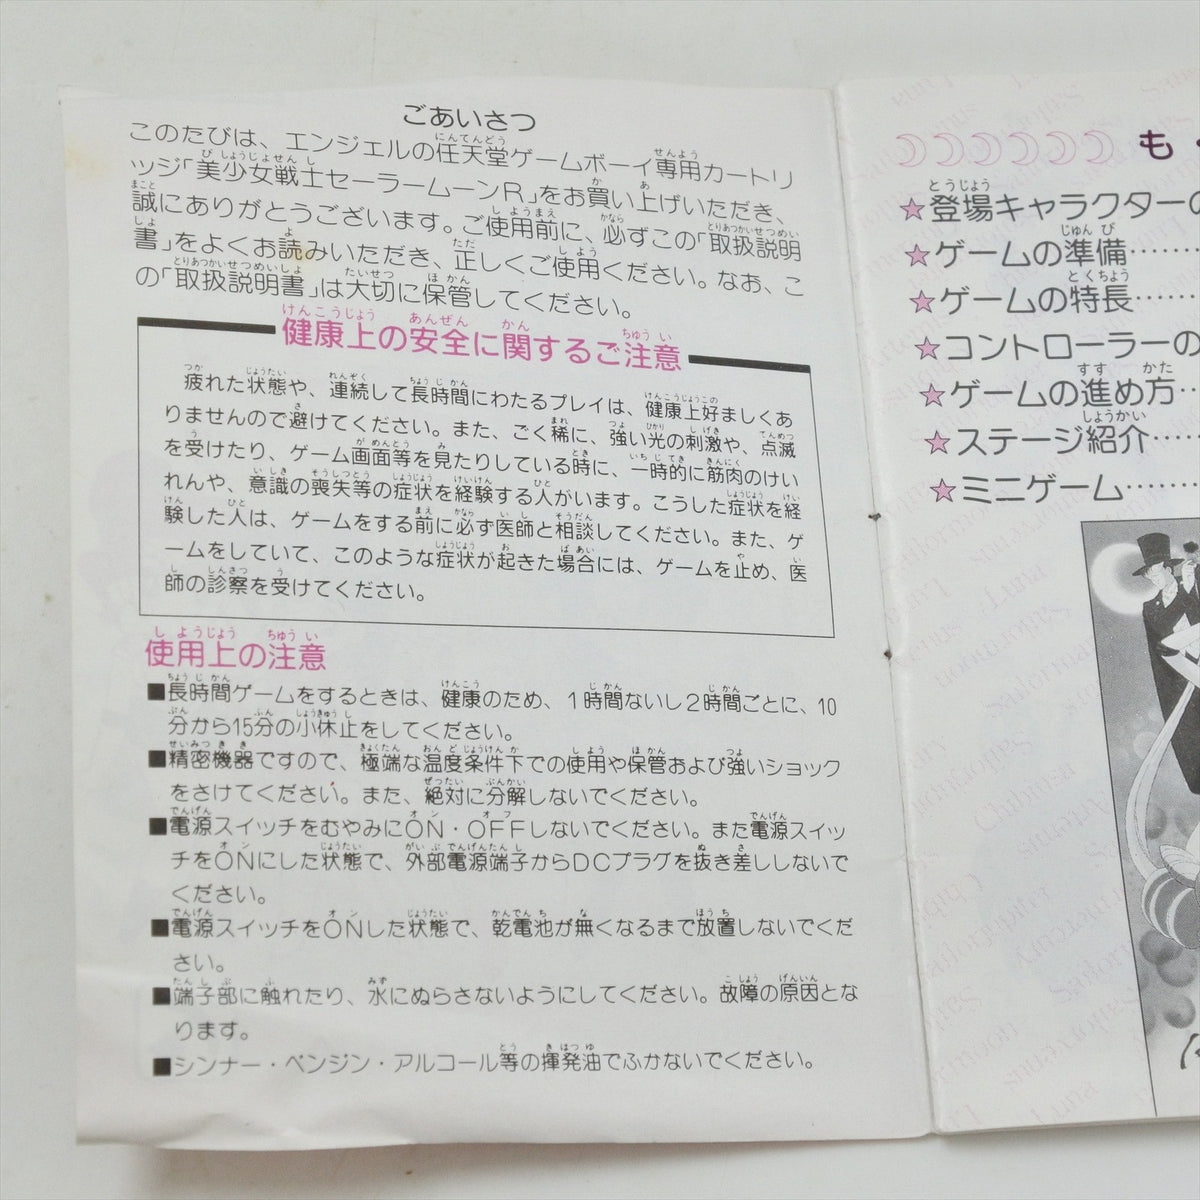 ごあいさつ
このたびは、エンジェルの任天堂ゲームボーイ専用カートリ
ッジ「美少女戦士セーラームーンR」をお買い上げいただき、
誠にありがとうございます。ご使用前に、必ずこの「取扱説明
書」をよくお読みいただき、正しくご使用ください。なお、こ
の「取扱説明書」は大切に保管してください。
健康上の安全に関するご注意
疲れた状態や、連続して長時間にわたるプレイは、健康上好ましくあ
りませんので避けてください。また、ごく稀に、強い光の刺激や、点滅
を受けたり、ゲーム画面等を見たりしている時に、一時的に筋肉のけい
れんや、意識の喪失等の症状を経験する人がいます。こうした症状を経
験した人は、ゲームをする前に必ず医師と相談してください。また、ゲ
ームをしていて、このような症状が起きた場合には、ゲームを止め、医
師の診察を受けてください。
使用上の注意
■長時間ゲームをするときは、健康のため、1時間ないし2時間ごとに、10
分から15分の小休止をしてください。
■精密機器ですので、極端な温度条件下での使用や保管および強いショック
をさけてください。また、絶対に分解しないでください。
■電源スイッチをむやみにON・OFFしないでください。また電源スイッ
チをONにした状態で、外部電源端子からDCプラグを抜き差ししないで
ください。
■電源スイッチをONした状態で、乾電池が無くなるまで放置しないでくだ
さい。
■端子部に触れたり、水にぬらさないようにしてください。故障の原因とな
ります。
■シンナー・ベンジン・アルコール等の揮発油でふかないでください。
も
★登場キャラクターの
★ゲームの準備……
★ゲームの特長……
★コントローラーの
★ゲームの進め方…
★ステージ紹介……
★ミニゲーム………